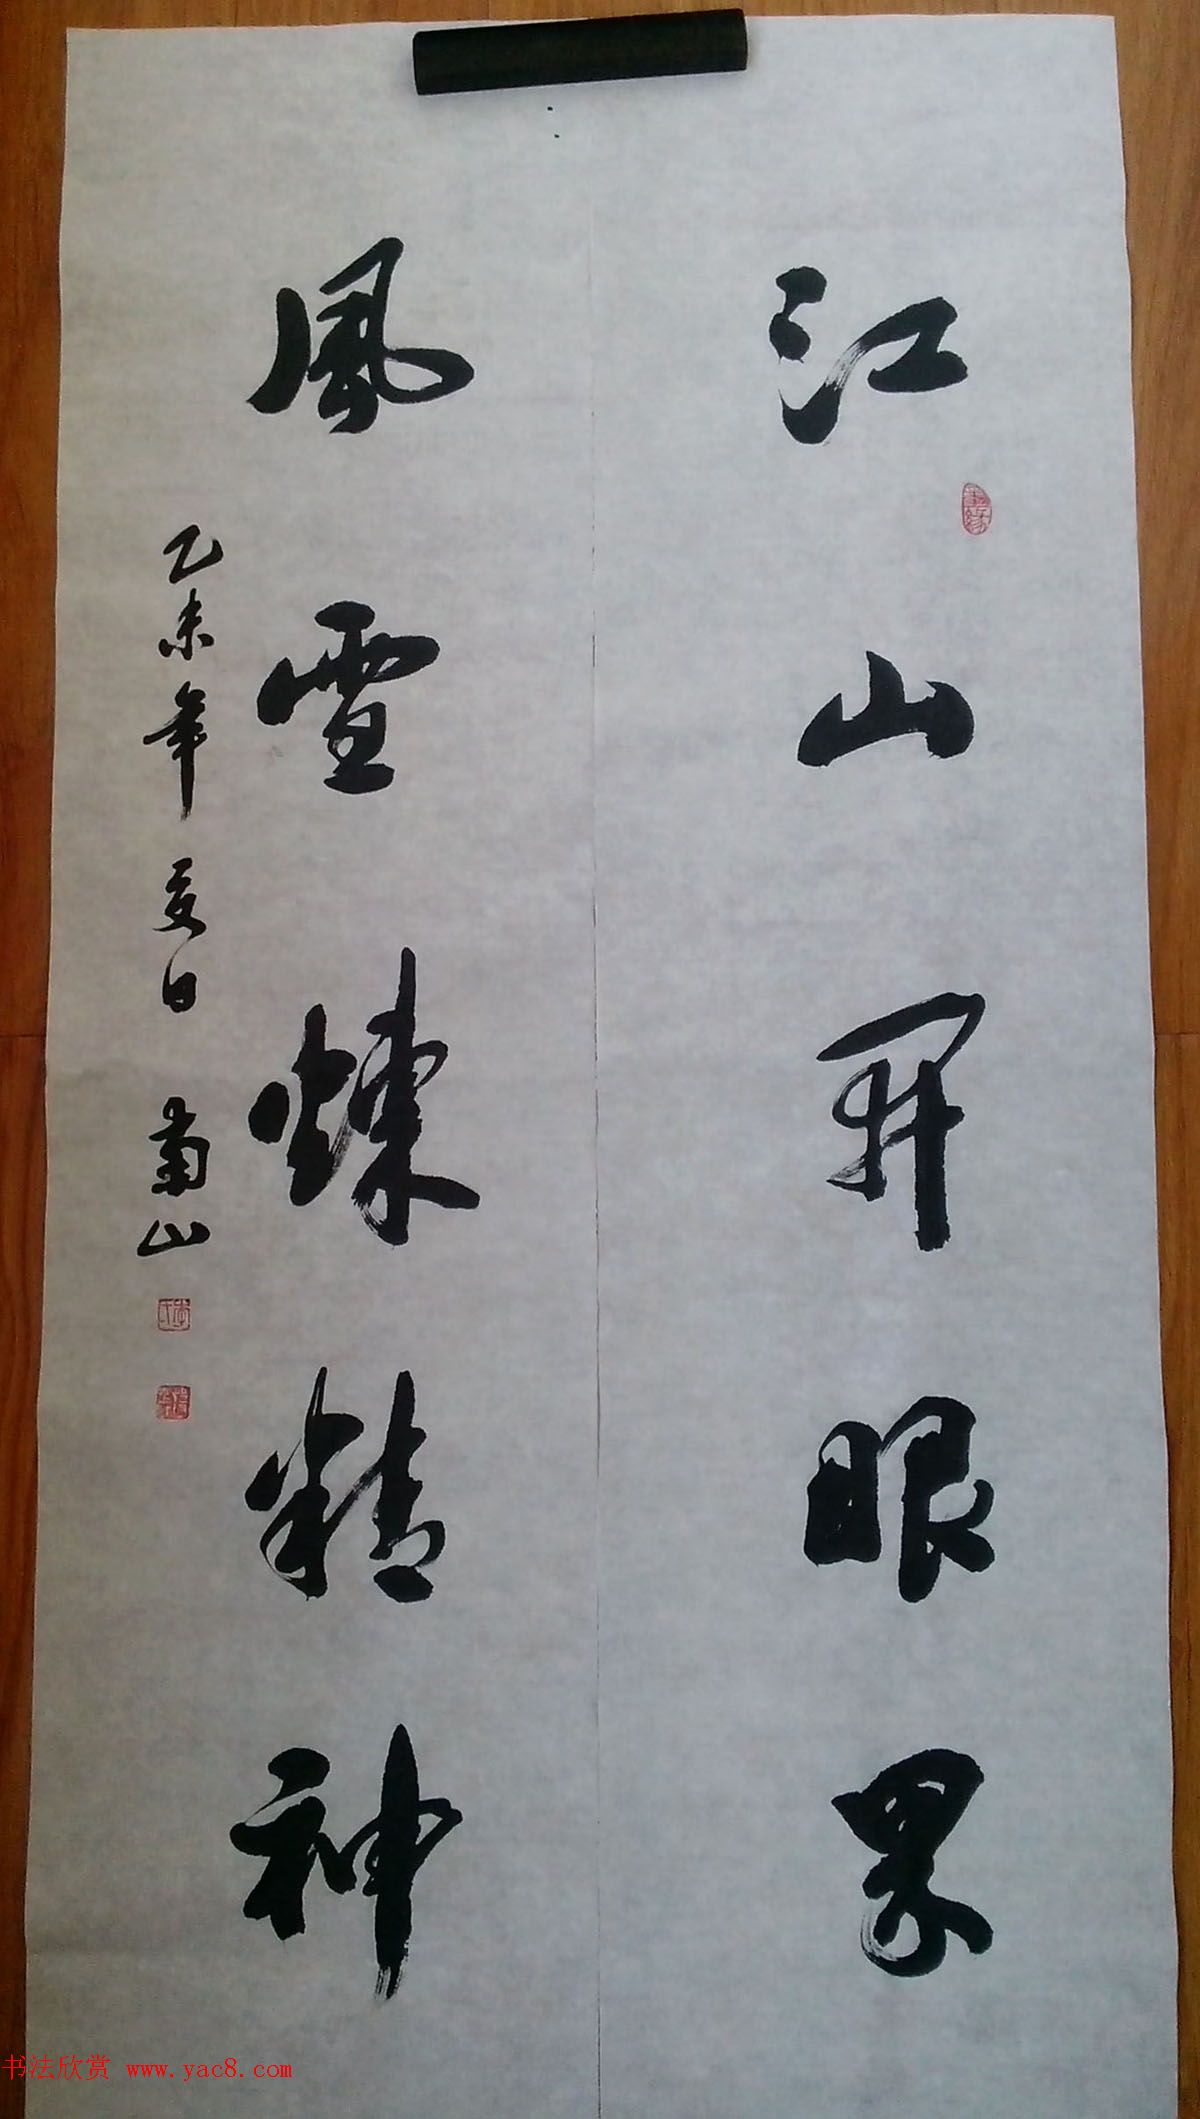 江山开眼界
風雪煉精神
乙未年夏日 南山
书法欣赏 www.yac8.com